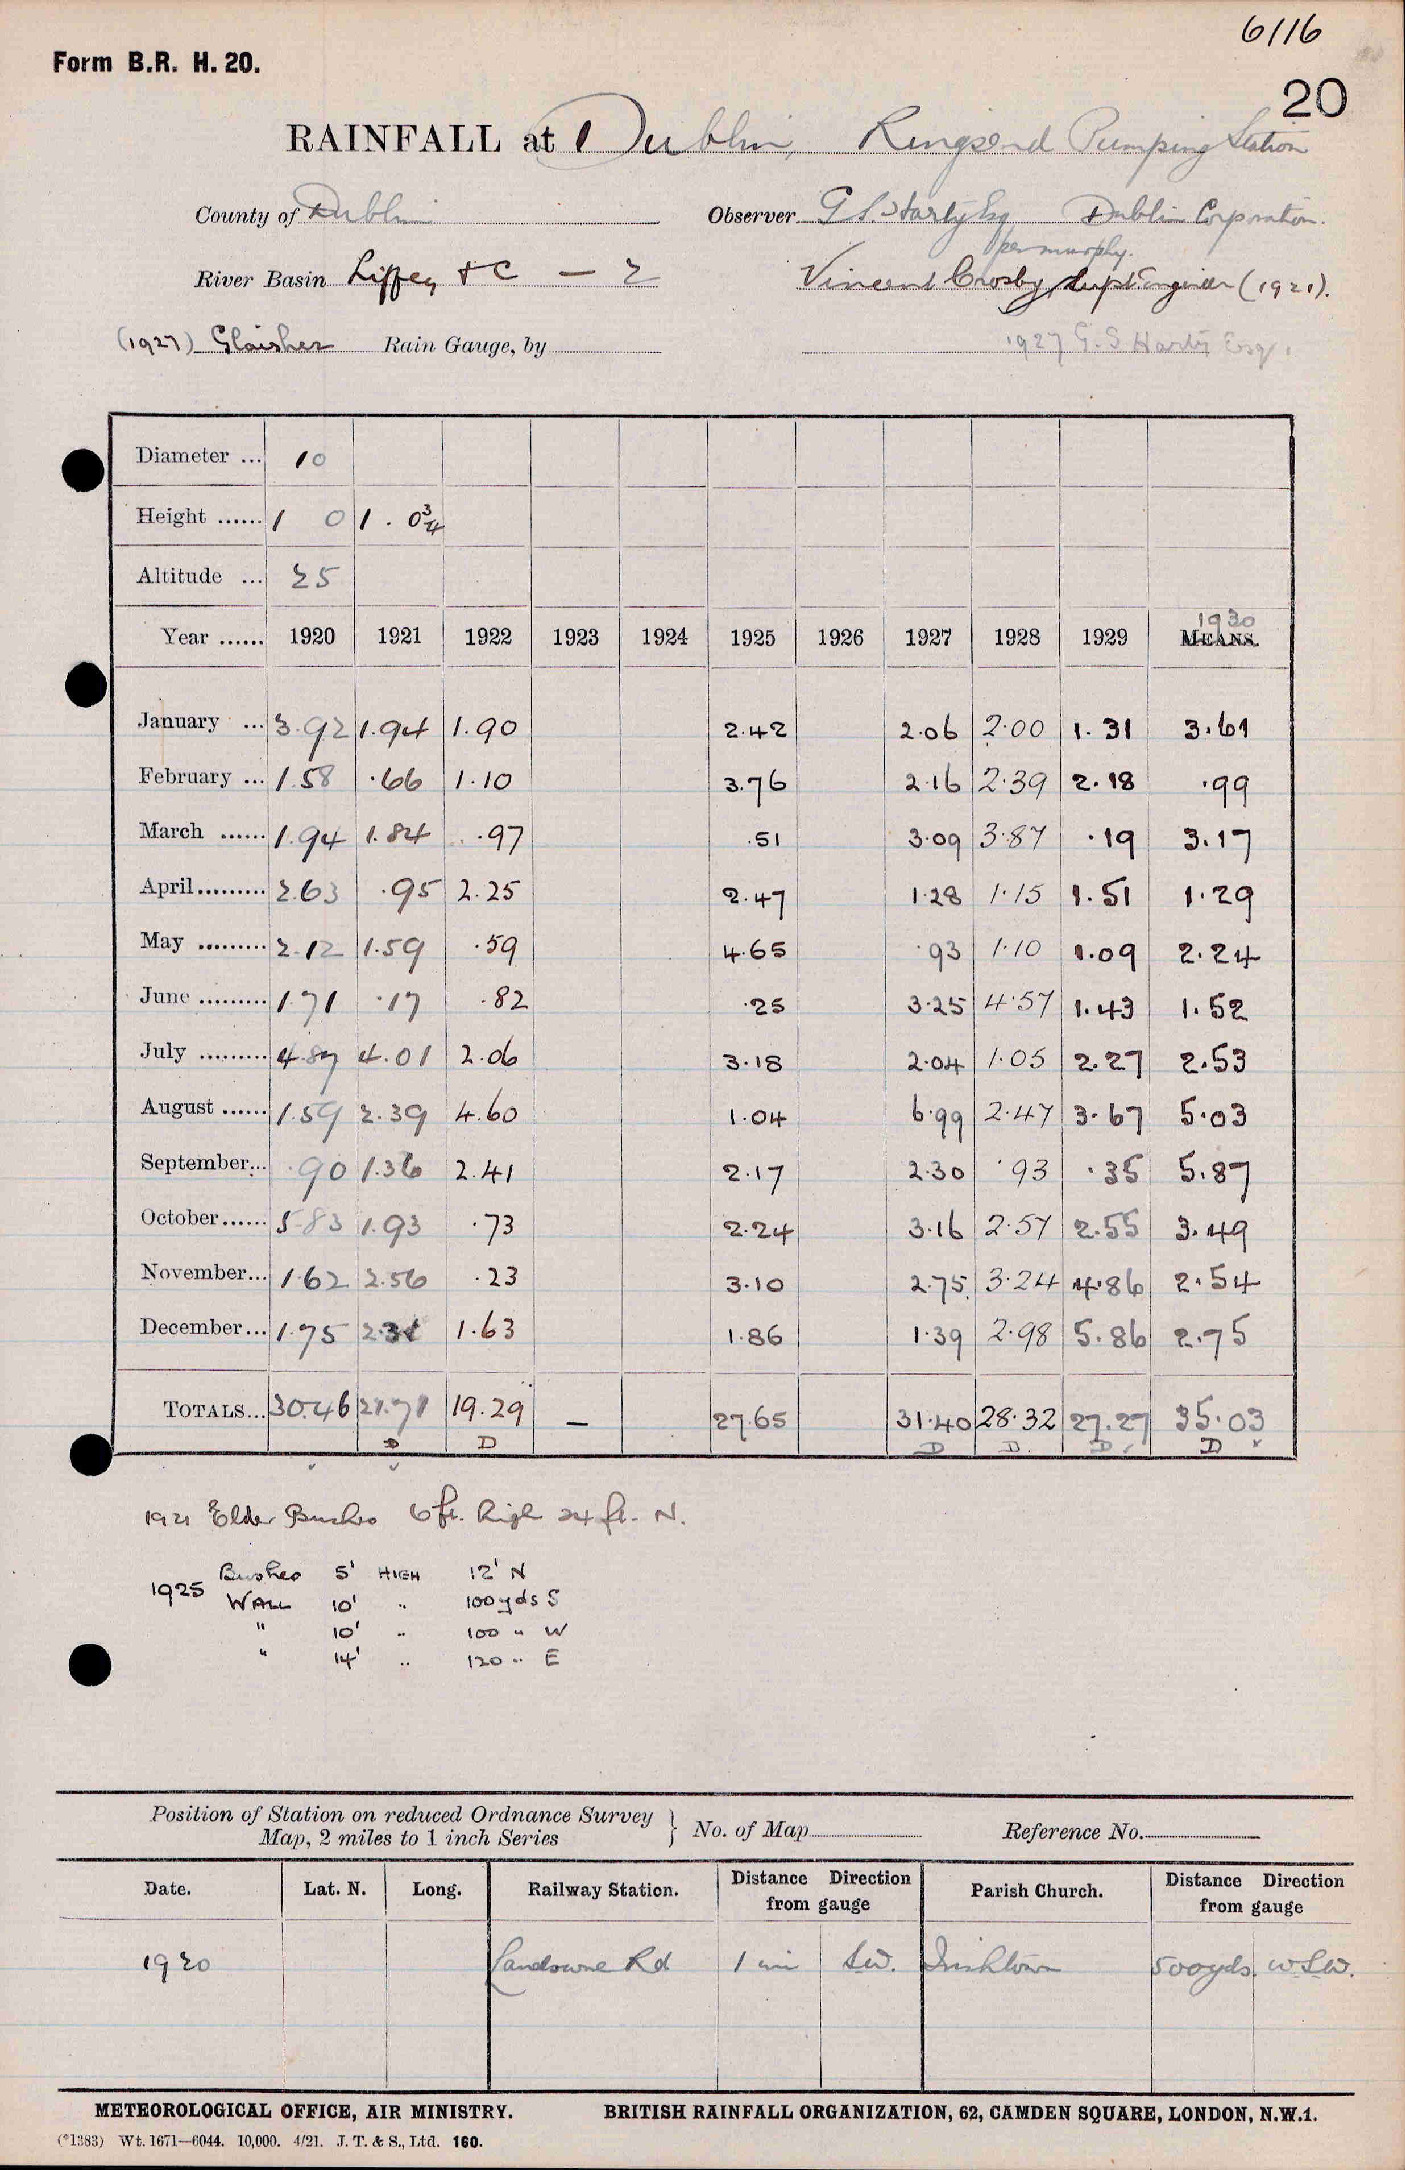 6116
Form B.R. H. 20.
20
RAINFALL at Dublin, Ringsend Pumping Station
County of Dublin Observer G S Harty Esq Dublin Corporation.
per murphy.
River Basin Liffey + C — 2 Vincent Crosby Supt Engineer (1921).
(1927) Glaisher Rain Gauge, by 1927 G. S Harty Esq.
Diameter ... 10
Height ...... 1 0 1 . 0¾
Altitude ... 25
1930
Year ...... 1920 1921 1922 1923 1924 1925 1926 1927 1928 1929 MEANS.
January ... 3.92 1.94 1.90 2.42 2.06 2.00 1.31 3.61
February ... 1.58 .66 1.10 3.76 2.16 2.39 2.18 .99
March ...... 1.94 1.84 .97 .51 3.09 3.87 .19 3.17
April......... 2.63 .95 2.25 2.47 1.28 1.15 1.51 1.29
May ......... 2.12 1.59 .59 4.65 .93 1.10 1.09 2.24
June ......... 1.71 .17 .82 .25 3.25 4.57 1.43 1.52
July ......... 4.87 4.01 2.06 3.18 2.04 1.05 2.27 2.53
August ...... 1.59 2.39 4.60 1.04 6.99 2.47 3.67 5.03
September... .90 1.36 2.41 2.17 2.30 .93 .35 5.87
October...... 5.83 1.93 .73 2.24 3.16 2.57 2.55 3.49
November... 1.62 2.56 .23 3.10 2.75 3.24 4.86 2.54
December... 1.75 2.31 1.63 1.86 1.39 2.98 5.86 2.75
TOTALS... 30.46 21.71 19.29 — 27.65 31.40 28.32 27.27 35.03
D D D D D D
1921 Elder Bushes 6 ft. high 24 ft. N.
1925 Bushes 5' HIGH 12' N
WALL 10' " 100 yds S
" 10' " 100 " W
" 14' " 120 " E
Position of Station on reduced Ordnance Survey
Map, 2 miles to 1 inch Series } No. of Map Reference No.
Date. Lat. N. Long. Railway Station. Distance Direction from gauge Parish Church. Distance Direction from gauge
1920 Landsowne Rd 1 mi S.W. Irishtown 500 yds. W S W.
METEOROLOGICAL OFFICE, AIR MINISTRY. BRITISH RAINFALL ORGANIZATION, 62, CAMDEN SQUARE, LONDON, N.W.1.
(*1383) Wt. 1671—6044. 10,000. 4/21. J. T. & S., Ltd. 160.